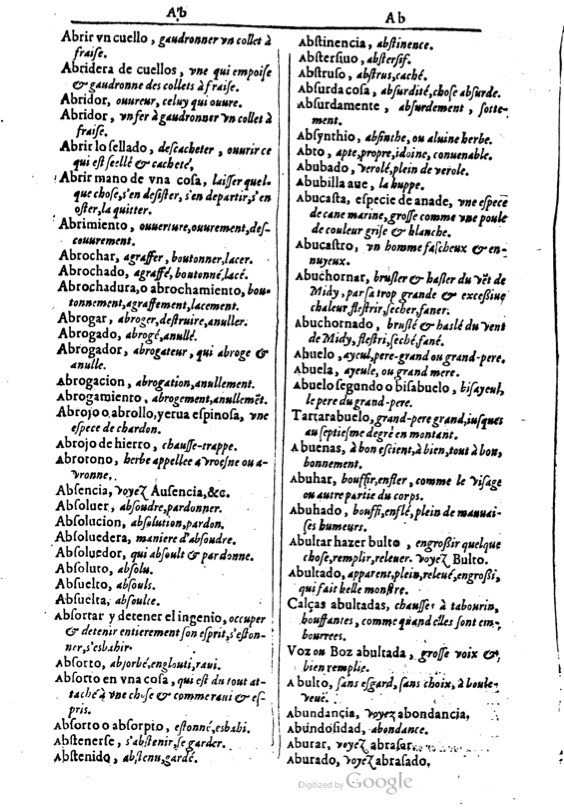 Ab
Abrir vn cuello, gaudronner vn collet à
fraise.
Abridera de cuellos, vne qui empoise
& gaudronne des collets à fraise.
Abridor, ouureur, celuy qui ouure.
Abridor, vn fer à gaudronner vn collet à
fraise.
Abrir lo sellado, descacheter, ouurir ce
qui est seellé & cacheté,
Abrir mano de vna cosa, laisser quel-
que chose, s'en desister, s'en departir, s'en
oster, la quitter.
Abrimiento, ouuerture, ouurement, des-
couurement.
Abrochar, agraffer, boutonner, lacer.
Abrochado, agraffé, boutonné, lacé.
Abrochadura, o abrochamiento, bou-
tonnement, agraffement, lacement.
Abrogar, abroger, destruire, anuller.
Abrogado, abrogé, anullé.
Abrogador, abrogateur, qui abroge &
anulle.
Abrogacion, abrogation, anullement.
Abrogamiento, abrogement, anullemẽt.
Abrojo o abrollo, yerua espinosa, vne
espece de chardon.
Abrojo de hierro, chausse-trappe.
Abrotono, herbe appellee avroesne ou a-
vronne.
Absencia, voyez Ausencia, &c.
Absoluer, absoudre, pardonner.
Absolucion, absolution, pardon.
Absoluedera, maniere d'absoudre.
Absoluedor, qui absoult & pardonne.
Absoluto, absolu.
Absuelto, absouls.
Absuelta, absoulte.
Absortar y detener el ingenio, occuper
& detenir entierement son esprit, s'eston-
ner, s'esbahir.
Absorto, absorbé, englouti, raui.
Absorto en vna cosa, qui est du tout at-
taché à vne chose & comme raui & es-
pris.
Absorto o absorpto, estonné, esbahi.
Abstenerse, s'abstenir, se garder.
Abstenido, abstenu, gardé.
Ab
Abstinencia, abstinence.
Abstersiuo, abstersif.
Abstruso, abstrus, caché.
Absurda cosa, absurdité, chose absurde.
Absurdamente, absurdement, sotte-
ment.
Absynthio, absinthe, ou aluine herbe.
Abto, apte, propre, idoine, conuenable.
Abubado, verolé, plein de verole.
Abubilla aue, la huppe.
Abucasta, especie de anade, vne espece
de cane marine, grosse comme vne poule
de couleur grise & blanche.
Abucastro, vn homme fascheux & en-
nuyeux.
Abuchornar, brusler & hasler du vẽt de
Midy, par sa trop grande & excessiue
chaleur flestrir, secher, faner.
Abuchornado, bruslé & haslé du vent
de Midy, flestri, seché, fané.
Abuelo, ayeul, pere-grand ou grand-pere.
Abuela, ayeule, ou grand mere.
Abuelo segundo o bisabuelo, bisayeul,
le pere du grand-pere.
Tartarabuelo, grand-pere grand, iusques
au septiesme degré en montant.
Abuenas, à bon escient, à bien, tout à bon,
bonnement.
Abuhar, bouffir, enfler, comme le visage
ou autre partie du corps.
Abuhado, bouffi, enflé, plein de mauuai-
ses humeurs.
Abultar hazer bulto, engrossir quelque
chose, remplir, releuer. voyez Bulto.
Abultado, apparent, plein, releué, engrossi,
qui fait belle monstre.
Calças abultadas, chausses à tabourin,
bouffantes, comme quand elles sont em-
bourrees.
Voz ou Boz abultada, grosse voix &
bien remplie.
A bulto, sans esgard, sans choix, à boule-
veuë.
Abundancia, voyez abondancia,
Abundosidad, abondance.
Aburar, voyez abrasar.
Aburado, voyez abrasado,
Digitized by Google